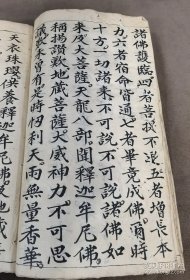 諸佛護臨四者菩提不退五者增長本
力六者宿命皆通七者畢竟成佛爾時
十方一切諸來不可說不可說諸佛如
來及大菩薩天龍八部聞釋迦牟尼佛
稱揚讚歎地藏菩薩大威神力不可思
議歎未曾有是時忉利天雨無量香華
天衣珠瓔供養釋迦牟尼佛